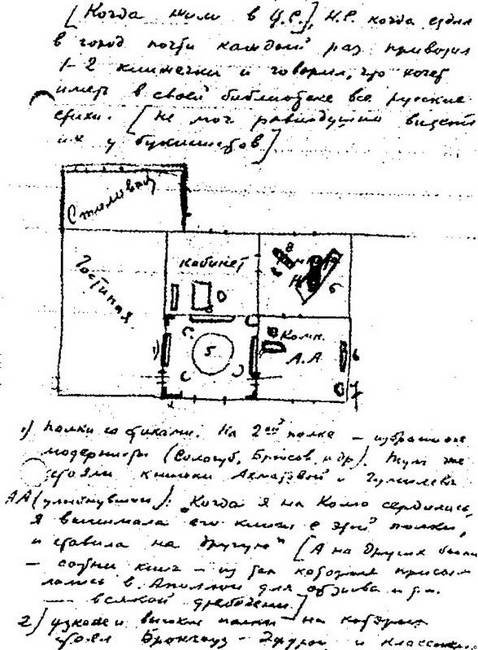 [Когда жили в Ц.С.], Н.Г. когда ездил
в город почти каждый раз привозил
1–2 книжечки и говорил, что хочет
иметь в своей библиотеке все русские
стихи. [Не мог равнодушно видеть
их у букинистов].
Столовая
Гостиная
кабинет
8
6
Н
Б
1)
5
8
Комн.
А.А
6
7
1) полки со стихами. На 2ой полке — избранные
модернисты (Сологуб, Брюсов и др.) Тут же
стояли книжки Ахматовой и Гумилева
АА (улыбнувшись): „Когда я на Колю сердилась,
я вынимала его книги с этой полки,
и ставила на другую" [А на других были
— сотни книг — из тех которые присы-
лались в Аполлон для отзыва и т.п.
— всякой дребедени]
2) узкие и высокие полки на которых
стоял Брокгауз-Эфрон и классики